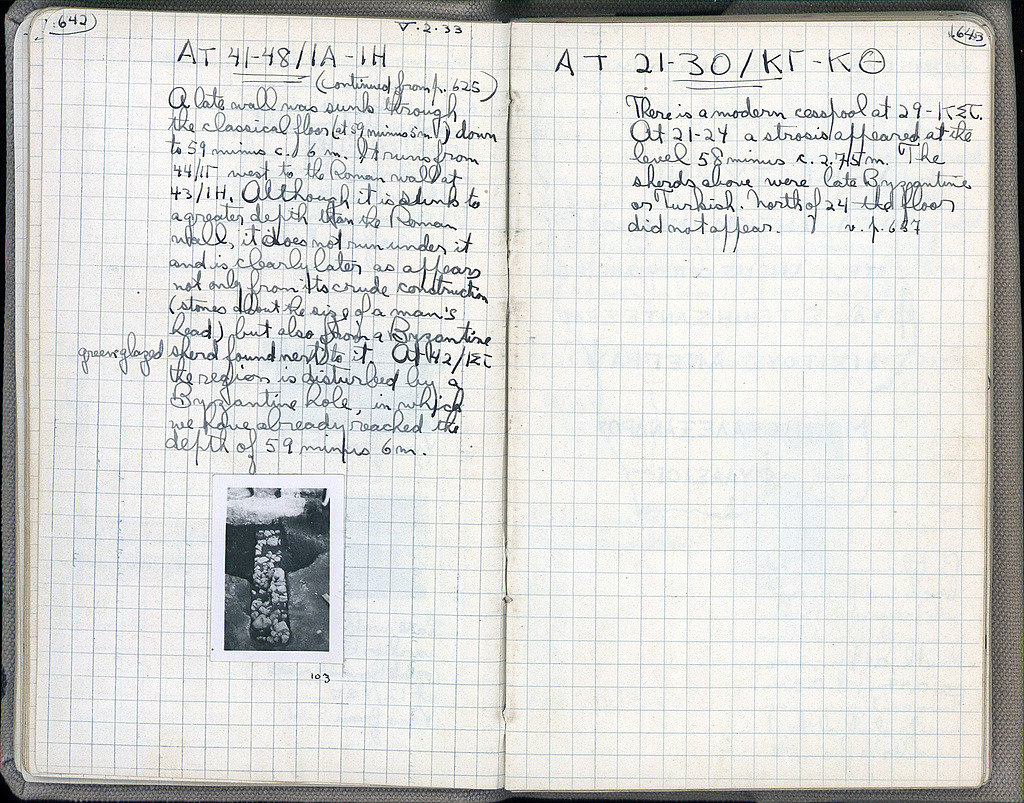 642
V.2.33
AT 41-48/IA-IH
(Continued from p. 625)
A late wall was sunk through
the classical floor (at 59 minus 5m.) down
to 59 minus c. 6 m. It runs from
44/IΓ west to the Roman wall at
43/IH. Although it is sunk to
a greater depth than the Roman
wall, it does not run under it
and is clearly later as appears
not only from its crude construction
(stones about the size of a man's
head) but also from a Byzantine
green glazed sherd found next to it. At 42/IΣΤ
the region is disturbed by a
Byzantine hole, in which
we have already reached the
depth of 59 minus 6m.
103
643
AT 21-30/KΓ-KΘ
There is a modern cesspool at 29-KΣΤ.
At 21-24 a strosis appeared at the
level 58 minus c. 2.75m. The
sherds above were late Byzantine
or Turkish. North of 24 the floor
did not appear. v. p. 637